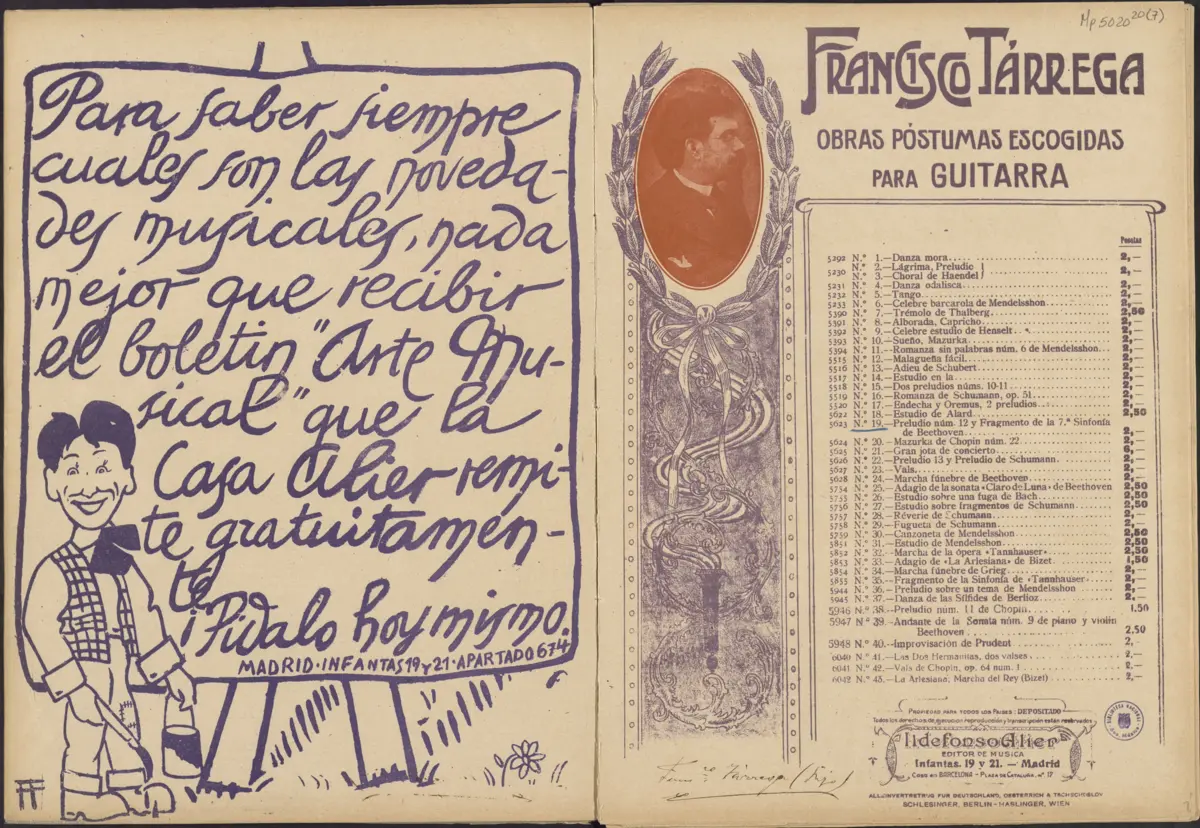 Para saber siempre
cuales son las noveda-
des musicales, nada
mejor que recibir
el boletin "Arte Mu-
sical" que la
Casa Alier remi-
te gratuitamen-
te
¡Pidalo hoy mismo.
MADRID·INFANTAS 19 y 21·APARTADO 674
Mp 5020 20(7)
FRANCISCO TÁRREGA
OBRAS PÓSTUMAS ESCOGIDAS
PARA GUITARRA
Pesetas
5292 N.º 1.—Danza mora 2,—
N.º 2.—Lágrima, Preludio
5230 N.º 3.—Choral de Haendel 2,—
5231 N.º 4.—Danza odalisca 2,—
5232 N.º 5.—Tango 2,—
5233 N.º 6.—Celebre barcarola de Mendelsshon 2,—
5390 N.º 7.—Trémolo de Thalberg 2,50
5391 N.º 8.—Alborada, Capricho 2,—
5392 N.º 9.—Celebre estudio de Henselt 2,—
5393 N.º 10.—Sueño, Mazurka 2,—
5394 N.º 11.—Romanza sin palabras núm. 6 de Mendelsshon 2,—
5515 N.º 12.—Malagueña fácil 2,—
5516 N.º 13.—Adieu de Schubert 2,—
5517 N.º 14.—Estudio en la 2,—
5518 N.º 15.—Dos preludios núms. 10-11 2,—
5519 N.º 16.—Romanza de Schumann, op. 51 2,—
5520 N.º 17.—Endecha y Oremus, 2 preludios 2,—
5622 N.º 18.—Estudio de Alard 2,50
5623 N.º 19.—Preludio núm. 12 y Fragmento de la 7.ª Sinfonía
de Beethoven 2,—
5624 N.º 20.—Mazurka de Chopin núm. 22 2,—
5625 N.º 21.—Gran jota de concierto 6,—
5626 N.º 22.—Preludio 13 y Preludio de Schumann 2,—
5627 N.º 23.—Vals 2,—
5628 N.º 24.—Marcha fúnebre de Beethoven 2,—
5754 N.º 25.—Adagio de la sonata «Claro de Luna» de Beethoven 2,50
5755 N.º 26.—Estudio sobre una fuga de Bach 2,50
5756 N.º 27.—Estudio sobre fragmentos de Schumann 2,50
5757 N.º 28.—Réverie de Schumann 2,—
5758 N.º 29.—Fugueta de Schumann 2,—
5759 N.º 30.—Canzoneta de Mendelsshon 2,50
5851 N.º 31.—Estudio de Mendelsshon 2,50
5852 N.º 32.—Marcha de la ópera «Tannhauser» 2,50
5853 N.º 33.—Adagio de «La Arlesiana» de Bizet 1,50
5854 N.º 34.—Marcha fúnebre de Grieg 2,—
5855 N.º 35.—Fragmento de la Sinfonía de «Tannhauser» 2,—
5944 N.º 36.—Preludio sobre un tema de Mendelsshon 2,—
5945 N.º 37.—Danza de las Sílfides de Berlioz 2,—
5946 N.º 38.—Preludio núm. 11 de Chopin 1,50
5947 N.º 39.—Andante de la Sonata núm. 9 de piano y violin
Beethoven 2,50
5948 N.º 40.—Improvisación de Prudent 2,
6040 N.º 41.—Las Dos Hermanitas, dos valses 2,—
6041 N.º 42.—Vals de Chopin, op. 64 num 1 2,—
6042 N.º 43.—La Arlesiana, Marcha del Rey (Bizet) 2,—
PROPIEDAD PARA TODOS LOS PAISES: DEPOSITADO
Todos los derechos de ejecución reproducción y transcripción están reservados
BIBLIOTECA NACIONAL
Ildefonso Alier
EDITOR DE MUSICA
Infantas, 19 y 21. — Madrid
CASA EN BARCELONA – PLAZA DE CATALUÑA, n.º 17
Tárrega (Hijo)
ALLEINVERTRETUG FUR DEUTSCHLAND, OESTERRICH & TSCHECOSLOV
SCHLESINGER, BERLIN - HASLINGER, WIEN